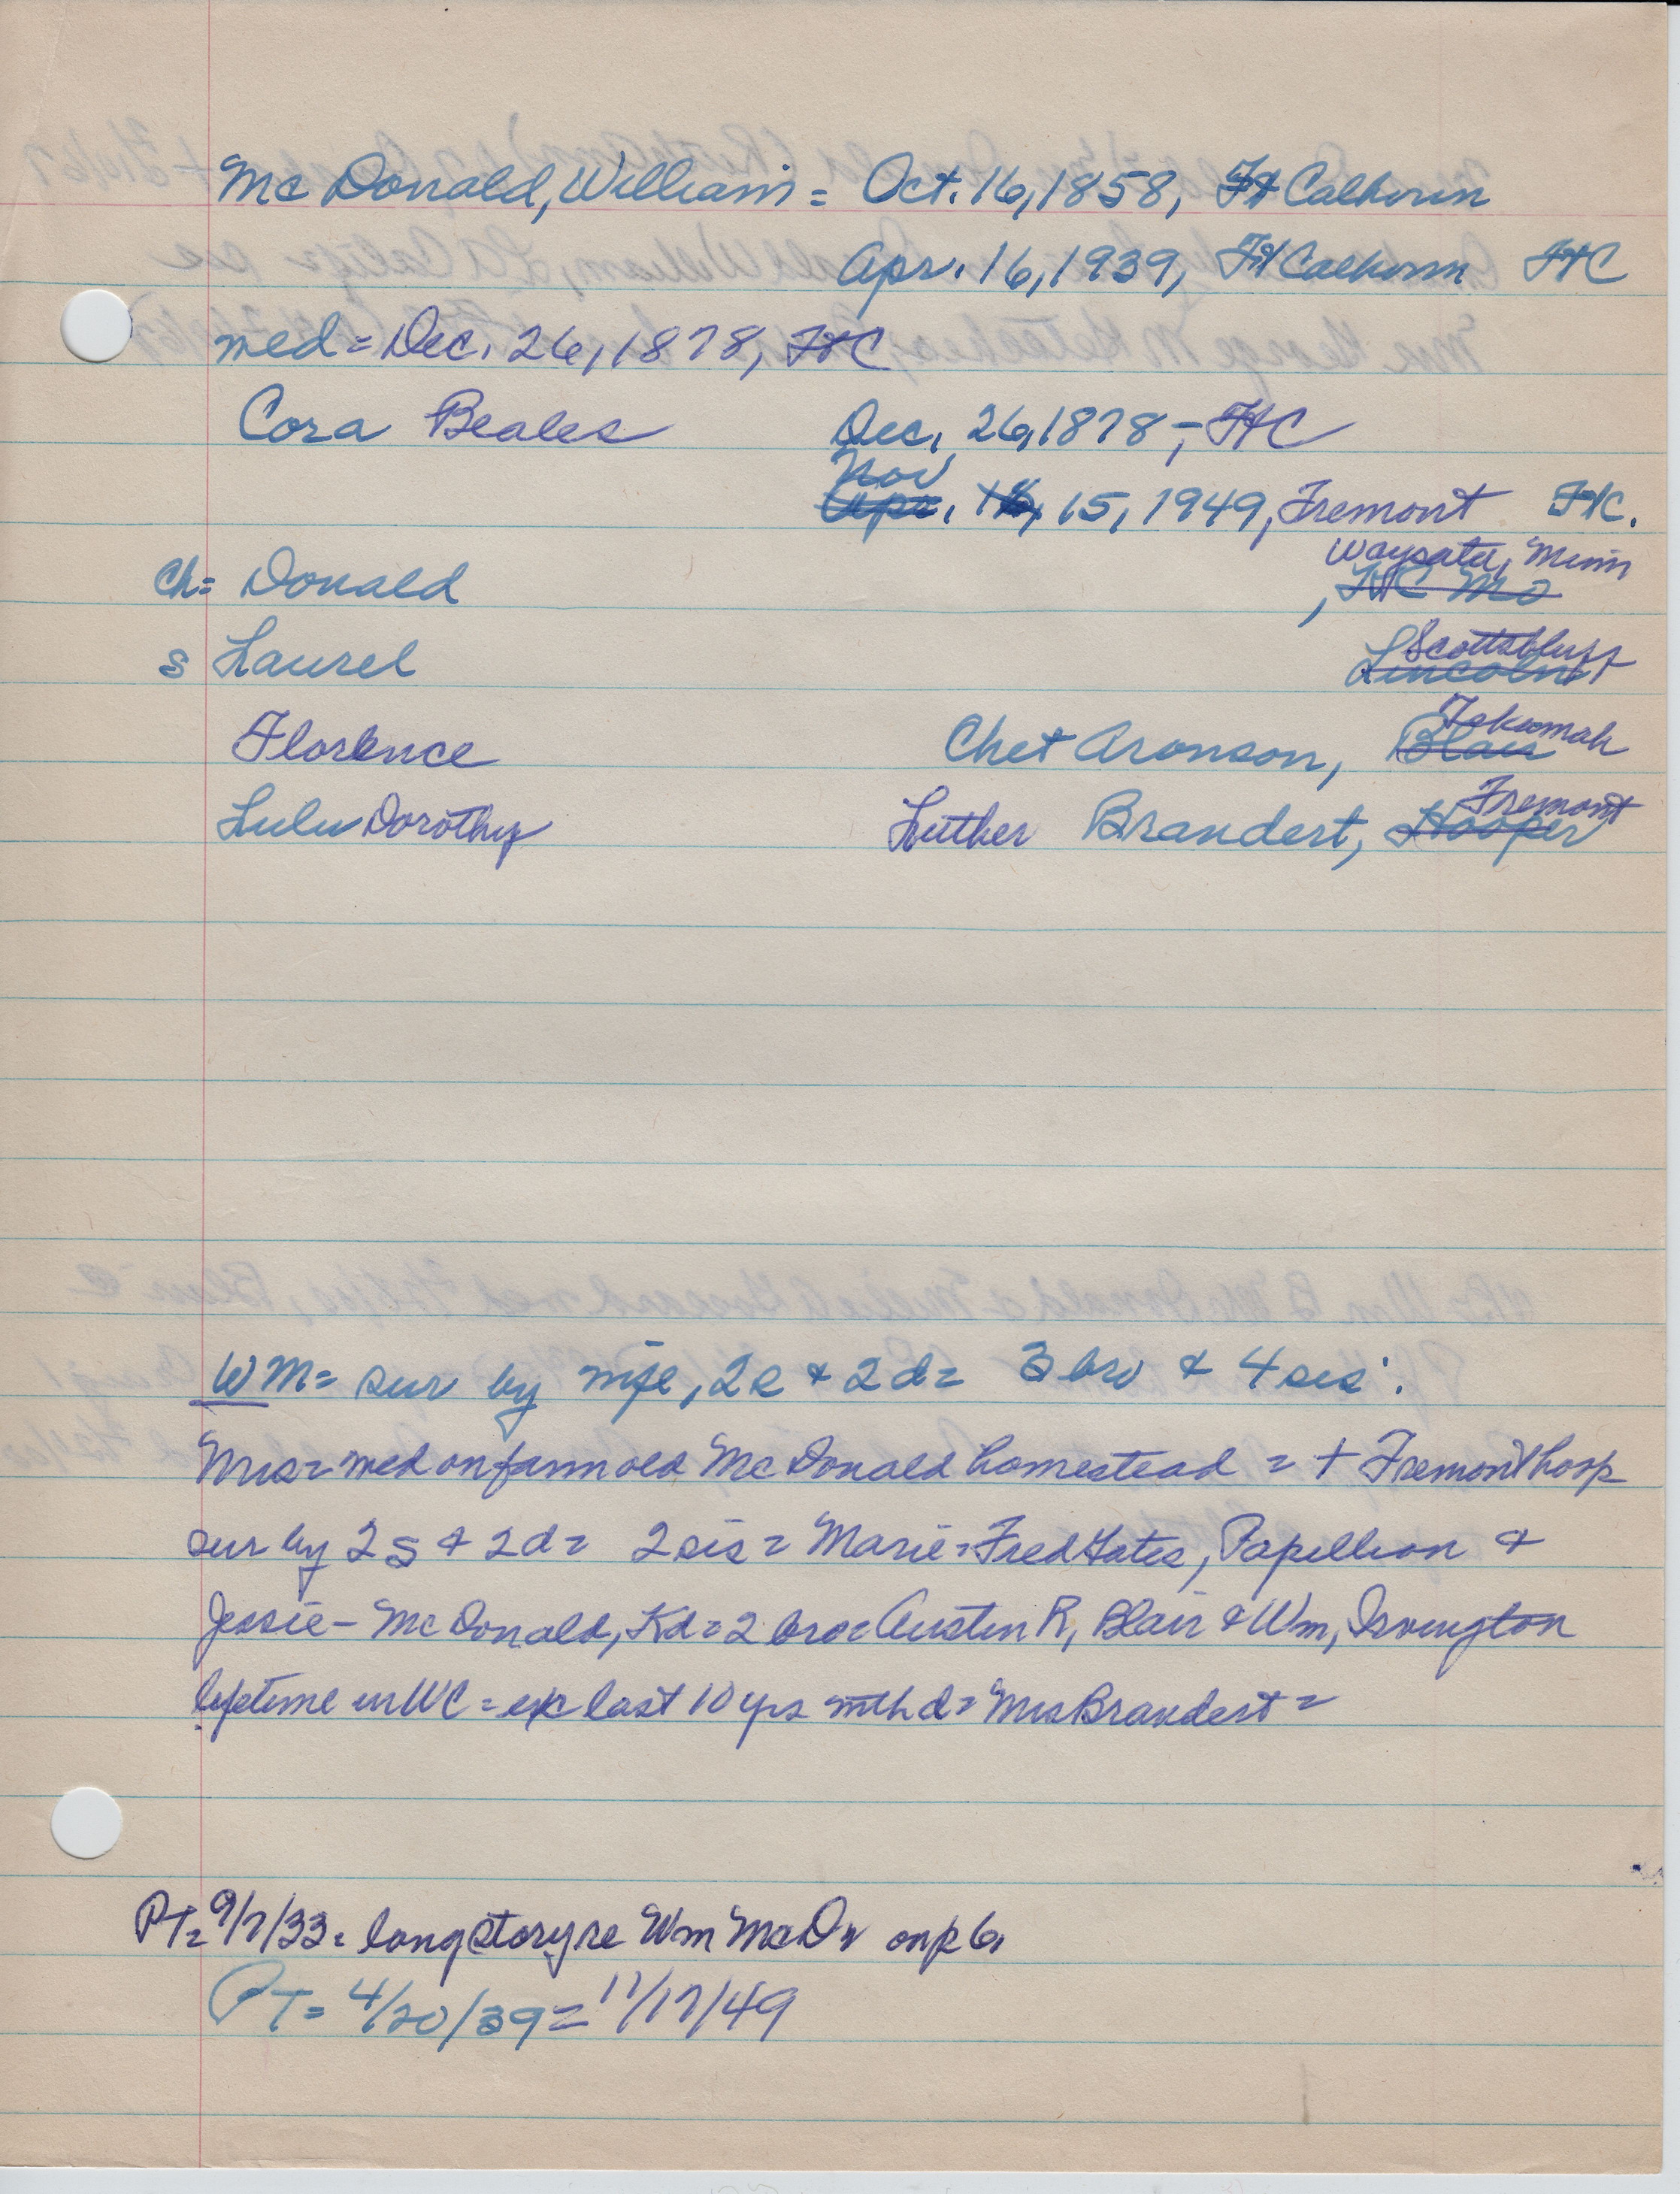 McDonald, William = Oct. 16, 1858, Ft Calhoun
Apr. 16, 1939, Ft Calhoun FtC
med = Dec. 26, 1878, FtC
Cora Beales Dec. 26, 1878 -, FtC
Nov
Apr. 16, 15, 1949, Fremont FtC.
Waysata, Minn
ch = Donald , FtC Mo
Scottsbluff
s Laurel Lincoln
Tekamah
Florence Chet Aronson, Blair
Fremont
Lulu Dorothy Luther Brandert, Hooper
WM = sur by wife, 2s + 2d = 3 bro + 4 sis.
Mrs = med on farm old McDonald homestead = + Fremont hosp
sur by 2s + 2d = 2 sis = Marie = Fred Yates, Papillion +
Jessie - McDonald, Kd = 2 bro = Austin R, Blair + Wm, Irvington
lifetime in WC = ex last 10 yrs with d = Mrs Brandert =
PT = 9/7/33 = long story re Wm McD on p 6
PT = 4/20/39 = 11/17/49